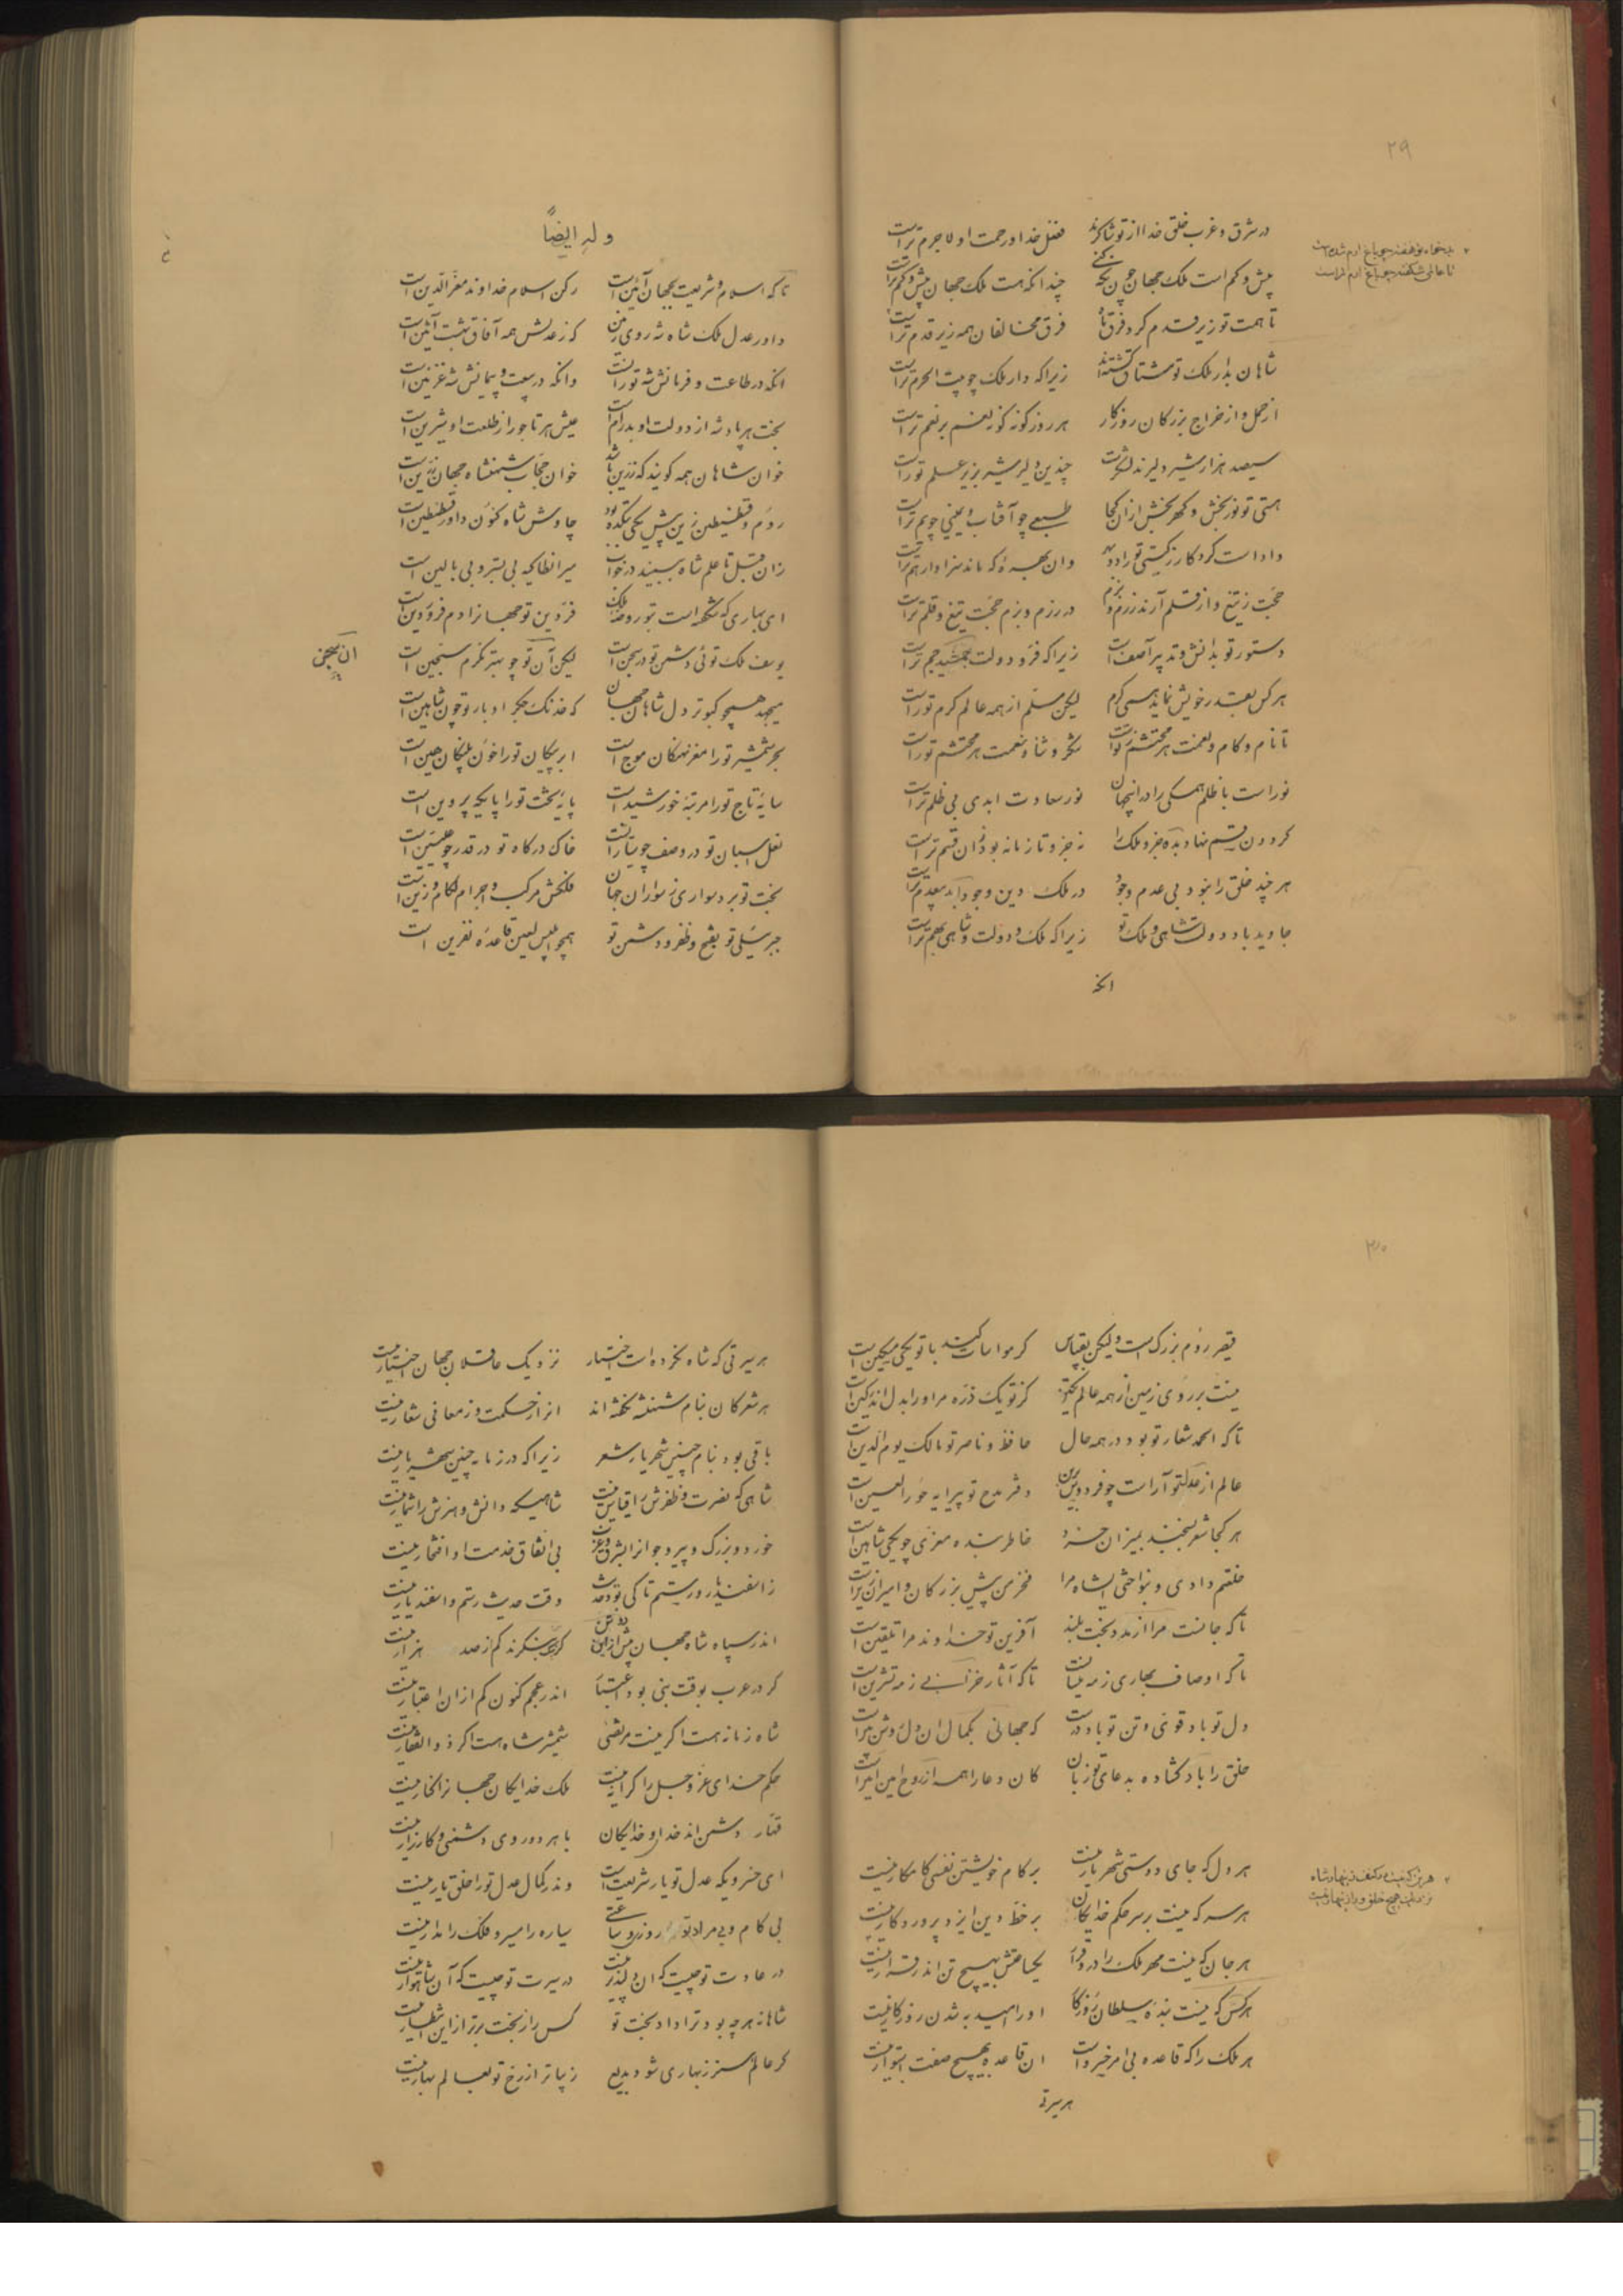 ۲۹
در شرق و غرب خلق خدا از تو شاکرند فضل خدا و رحمت او لاجرم تراست
بیش و کم است ملک جهان چون نگه کنی چندانکه هست ملک جهان بیش و کم تراست
تا همت تو زیر قدم کرد فرق فرق مخالفان همه زیر قدم تراست
شاهان بدار ملک تو مشتاق گشته‌اند زیرا که دار ملک چو بیت الحرم تراست
از حمل و از خراج بزرکان روزکار هر روز کونه کونه نعم بر نعم تراست
سیصد هزار شیر دلیرند لشکرت چندین دلیر شیر بزیر علم تو راست
هستی تو نور بخش و کهر بخش از ان کجا طبعی چو آفتاب و یمینی چو یم تراست
داد است کردکار ز کیتی تو را دو بهر وان بهره که ماند سزاوار هم تراست
حجت ز تیغ و از قلم آرند رزم و بزم در رزم و بزم حجت تیغ و قلم تراست
دستور تو بدانش و تدبیر آصف است زیرا که فر و دولت جمشید جم تراست
هر کس بقدر خویش نماید همی کرم لیکن مسلم از همه عالم کرم تو راست
تا نام و کام و نعمت هر محتشم ز تو است شکر و ثنا و نعمت هر محتشم تو راست
نور است با ظلم همکی را در اینجهان نور سعادت ابدی بی ظلم تراست
کردون قسم نهاد بده جزو ملک را نه جزو تا زمانه بود زان قسم تراست
هر چند خلق را نبود بی عدم وجود در ملک و دین وجود ابد بیعدم تراست
جاوید باد دولت شاهی و ملک تو زیرا که ملک و دولت و شاهی بهم تراست
انکه
وله ایضاً
تا که اسلام و شریعت بجهان آئین است رکن اسلام خداوند معز الدین است
داور عدل ملک شاه شه روی زمین که ز عدلش همه آفاق بهشت آئین است
انکه در طاعت و فرمانش شه توران است وانکه در بیعت و پیمانش شه غزنین است
بخت هر پادشه از دولت او پدرام است عیش هر تاجور از طلعت او شیرین است
خوان شاهان همه کویند که زرین باشد خوان حجاب شهنشاه جهان زرین است
روم و قسطنطین زین پیش یکی بتکده بود چاوش شاه کنون داور قسطنطین است
زان قبل تا علم شاه ببیند در خواب میر انطاکیه بی بستر و بی بالین است
ای بهاری که شکفته است بتو روضه ملک فرودین تو جهانرا دم فروردین است
یوسف ملک توئی دشمن تو در سجن است لیکن آن تو چو بهتر نکرم سجین است
میجهد همچو کبوتر دل شاهان جهان که خدنک جکر اوبار تو چون شاهین است
بحر شمشیر تو را مغز نهنکان موج است ابر پیکان تو را خون پلنکان هین است
سایه تاج تو را مرتبه خورشید است پایه تخت تو را پایکه پروین است
نعل اسبان تو در وصف چو سیارات است خاک درکاه تو در قدر چو علیین است
بخت تو برد سواری ز سواران جهان فلکش مرکب و اجرام لکام و زین است
جبرئیلی تو بفتح و ظفر و دشمن تو همچو ابلیس لعین قاعده نفرین است
۳۰
قیصر روم بزرک است ولیکن بقیاس کر مواسات کند با تو یکی مسکین است
نیست بر روی زمین از همه عالم کز تو یک ذره مر او را بدل اندر کین است
تا که الحمد شعار تو بود در همه حال حافظ و ناصر تو مالک یوم الدین است
عالم از عدل تو آراست چو فردوس برین دفتر مدح تو پیرایه حور العین است
هر کجا شعر بسنجند بمیزان خرد خاطر بنده معزی چو یکی شاهین است
خلعتم دادی و بنواختی ایشاه مرا فخر من پیش بزرکان و امیران زین است
تا که جانست مرا از مدد بخت بلند آفرین تو خداوند مرا تلقین است
تا که اوصاف بهاری ز مه نیسان است تا که آثار خزانی ز مه تشرین است
دل تو باد قوی و تن تو باد درست که جهانی بکمال ان دل و تن
خلق را باد کشاده بدعای تو زبان کان دعا را همه از روح امین آمین است
هر دل که جای دوستی شهریار نیست بر کام خویشتن نفسی کامکار نیست
هر سر که نیست بر سر حکم خدایکان بر خط دین ایزد پروردکار نیست
هر جان که نیست مهر ملک را در او قرار یکساعتش بهیچ تن اندر قرار نیست
هر کس که نیست بنده سلطان روزکار او را امید به شدن روزکار نیست
هر ملک را که قاعده بی امر خسرو است ان قاعده بهیچ صفت استوار نیست
هر سیرتی
هر سیرتی که شاه نکرده است اختیار نزدیک عاقلان جهان اختیار نیست
هر شعر کان بنام شهنشه نکفته‌اند انرا ز حکمت و ز معانی شعار نیست
باقی بود بنام چنین شهریار شعر زیرا که در زمانه چنین شهریار نیست
شاهی که نصرت و ظفرش را قیاس نیست شاهیکه دانش و هنرش را شمار نیست
خورد و بزرک و پیر و جوانرا بشرق و غرب بی اتفاق خدمت او افتخار نیست
ز اسفندیار و رستم تا کی بود حدیث وقت حدیث رستم و اسفندیار نیست
اندر سپاه شاه جهان بیش از این دو تن کر بنکرند کم از صد هزار نیست
کر در عرب بوقت نبی بود اعتبار اندر عجم کنون کم از ان اعتبار نیست
شاه زمانه هست اکر نیست مرتضی شمشیر شاه هست اکر ذوالفقار نیست
حکم خدای عز و جل را کرانه نیست ملک خدایکان جهانرا کنار نیست
کفار دشمن اند خدا و خدایکان با هر دو روی دشمنی و کارزار نیست
ای خسرویکه عدل تو یار شریعت است وندر کمال عدل تو را خلق یار نیست
بی کام و بی مراد تو روزی و ساعتی سیاره را مسیر و فلک را مدار نیست
در عادت تو چیست که ان دلپذیر نیست در سیرت تو چیست که آن شاهوار نیست
شاهانه هر چه بود ترا داد بخت تو کس را ز بخت برتر از این انتظار نیست
کر عالم سبز ز بهاری شود بدیع زیباتر از رخ تو بعالم بهار نیست